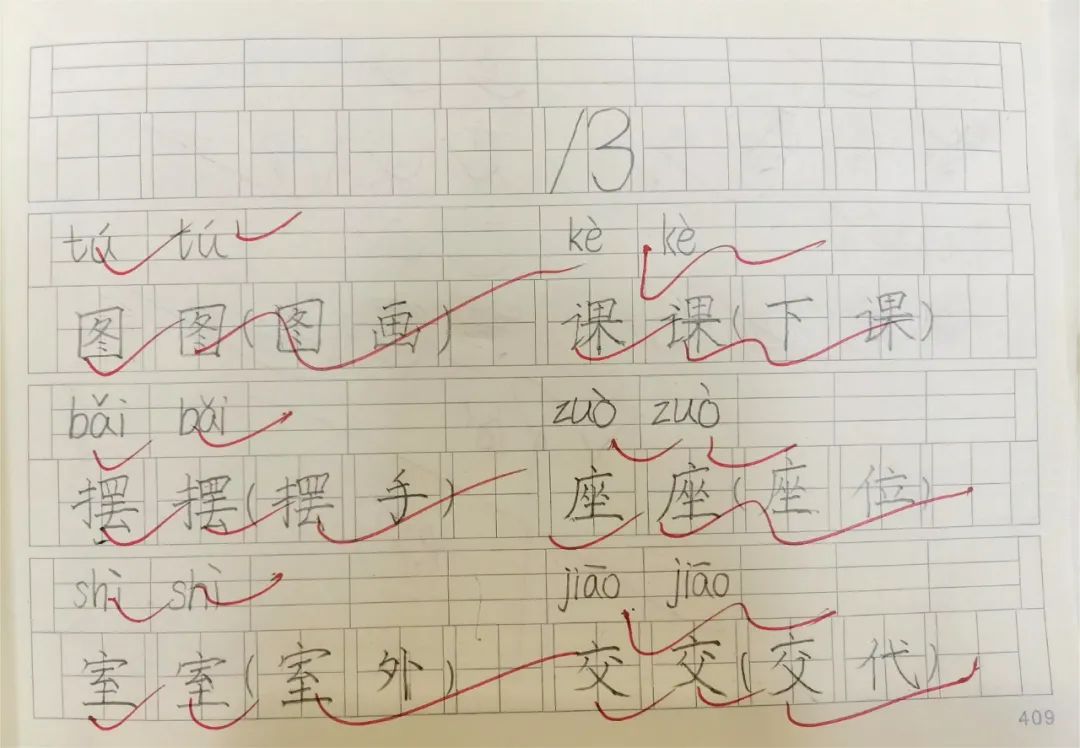 13
tú tú kè kè
图 图(图 画) 课 课(下 课)
bǎi bǎi zuò zuò
摆 摆(摆 手) 座 座(座 位)
shì shì jiāo jiāo
室 室(室 外) 交 交(交 代)
409